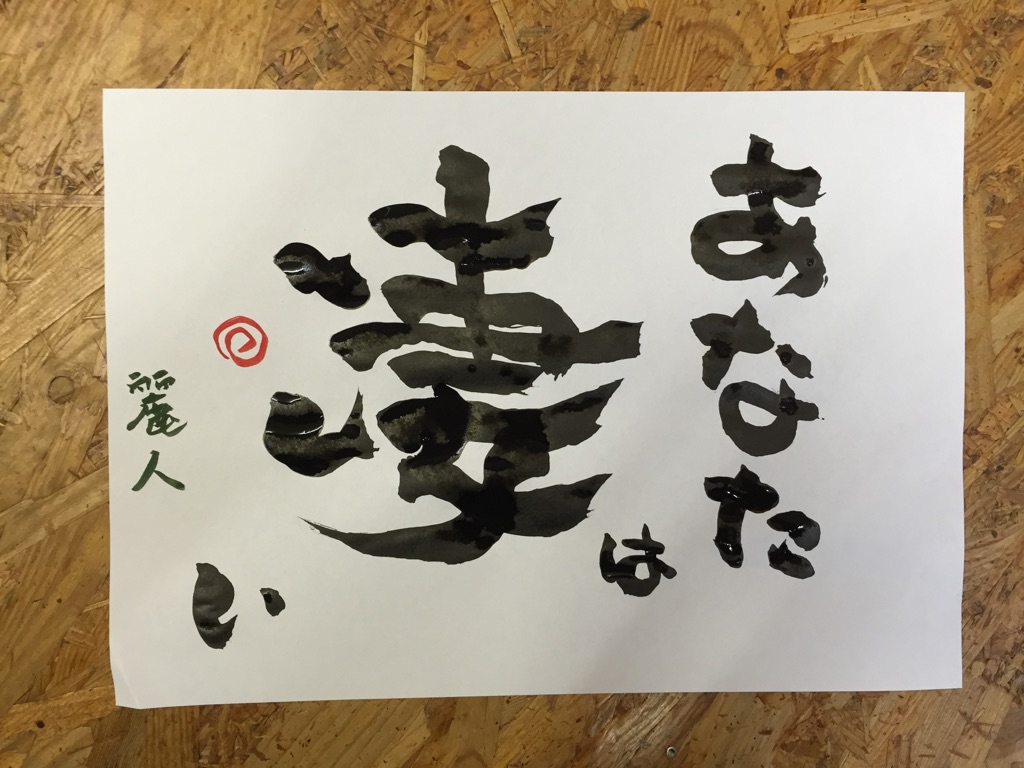 あなたは
凄い
麗人